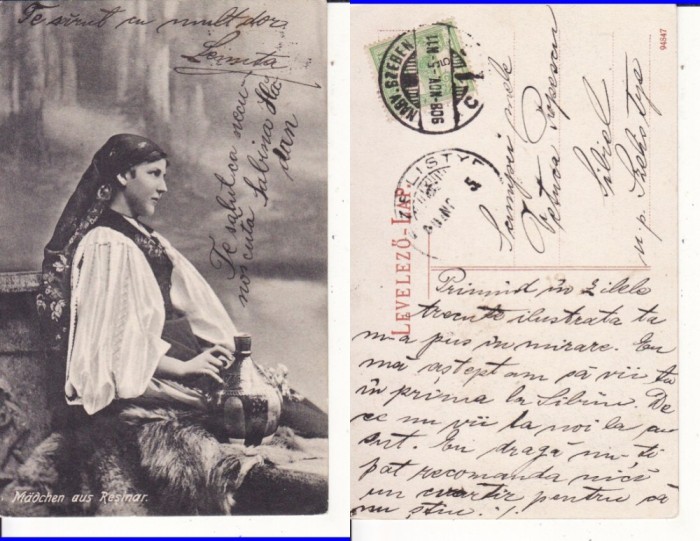 Te sărut cu mult dor
Lenuta
Te salut ca necu-
noscuta Sabina
Mädchen aus Resinar.
NAGY-SZEBEN
908 NOV
94847
LEVELEZŐ-LAP.
Popescu
Sibiel
u.p. Szelistye
Primind în zilele
trecute ilustrata ta
m-a pus în mirare. Eu
mă aștept am să vii ta
în prima la Sibiiu. De
ce nu vii la noi la
Eu dragă nu-ți
pot recomanda nici
un cuartir pentru că
nu știu.